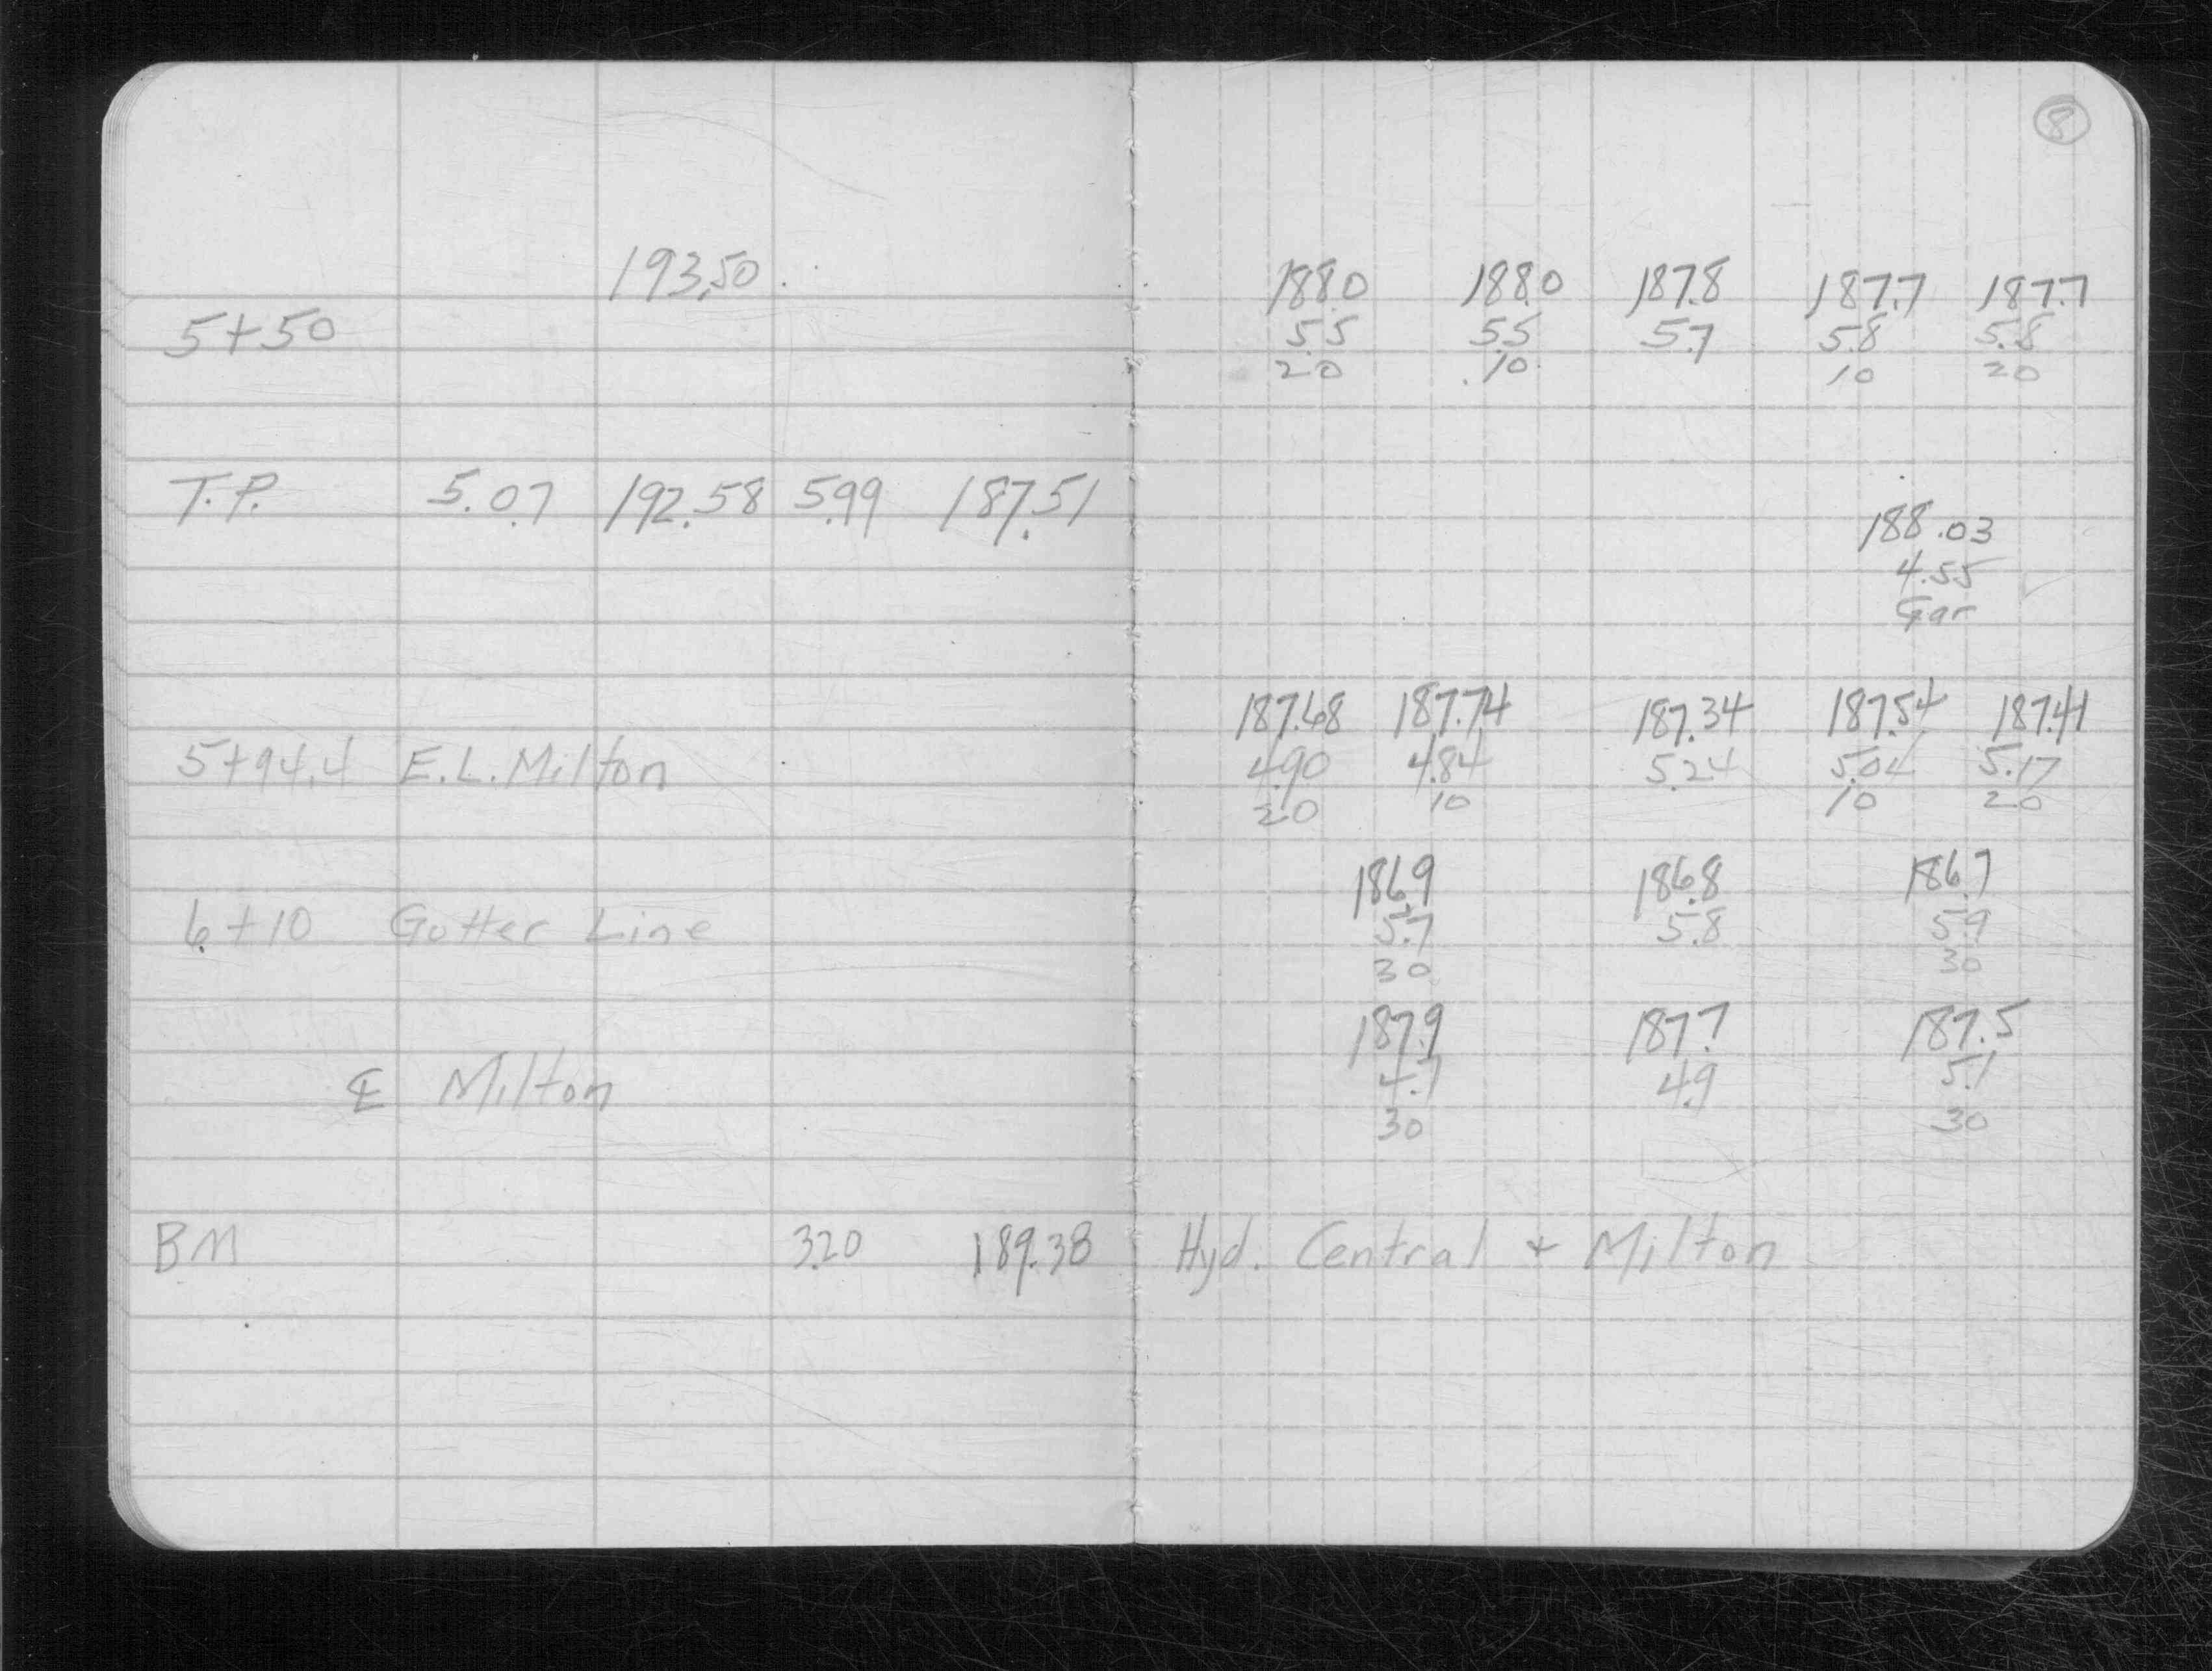 8
193.50
188.0 188.0 187.8 187.7 187.7
5+50 5.5 5.5 5.7 5.8 5.8
20 10 10 20
T.P. 5.07 192.58 5.99 187.51
188.03
4.55
Gar
187.68 187.74 187.34 187.54 187.41
5+94.4 E.L. Milton 4.90 4.84 5.24 5.04 5.17
20 10 10 20
186.9 186.8 186.7
6+10 Gutter Line 5.7 5.8 5.9
30 30
187.9 187.7 187.5
℄ Milton 4.7 4.9 5.1
30 30
BM 3.20 189.38 Hyd. Central + Milton